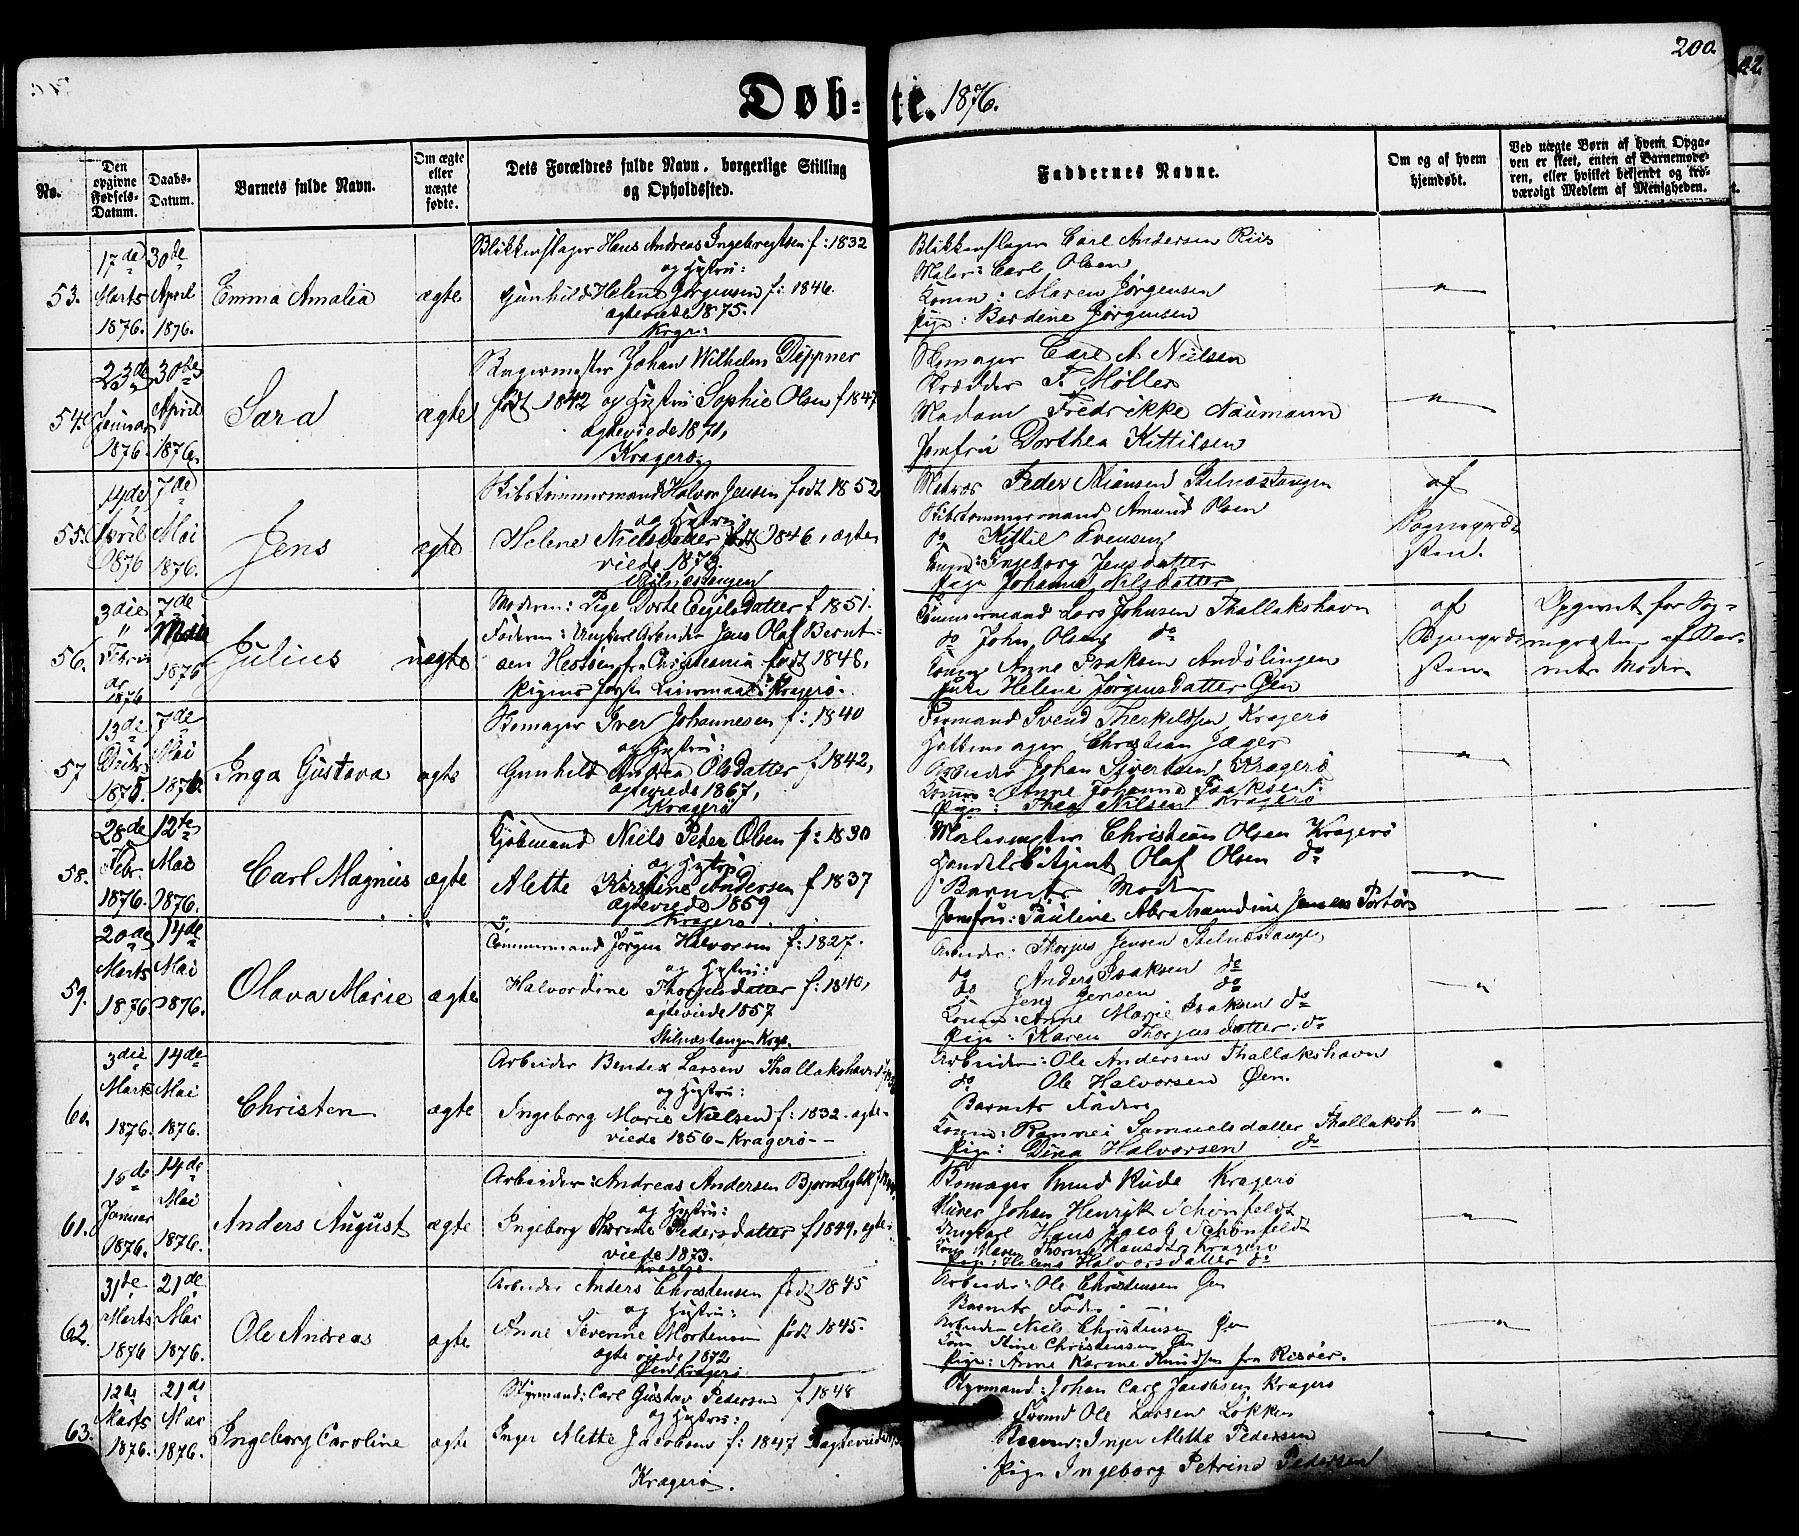 200.
Døb-te. 1876.
No.
Den opgivne Førsels-Datum.
Daabs-Datum.
Barnets fulde Navn.
Om ægte eller uægte fødte.
Dets Forældres fulde Navn, borgerlige Stilling og Opholdssted.
Faddernes Navne.
Om og af hvem hjemdøbt.
Ved uægte Børn af hvem Opgaven er skeet, enten af Barnemoderen, eller hvilket bekjendt og troværdigt Medlem af Menigheden.
53.
17de Marts 1876.
30de April 1876.
Emma Amalia
ægte
Blikkenslager Hans Andreas Ingebregtsen f: 1832
og Hustru:
Gunhild Helene Jørgensen f: 1846.
ægteviede 1875.
Krgr:
Blikkenslager Carl Andersen Riis
Maler: Carl Olsen
Konen: Maren Jørgensen
Pige: Bardine Jørgensen
54.
23de Januar 1876.
30te April 1876.
Sara
ægte
Bagermester Johan Wilhelm Dippner
født 1842 og Hustru Sophie Olsen f 1847
ægteviede 1871,
Kragerø
Skomager Carl A Nielsen
Skrædder F. Møller
Madam Fredrikke Naumann
Jomfru Dorthea Kittilsen
55.
14de April 1876
7de Mai 1876.
Jens
ægte
Skibstømmermand Halvor Jensen født 1852
og Hustru:
Helene Nielsdatter født 1846, ægte-
viede 1873.
Stilnæstangen
Matros Peder Stilnæstangen
Skibstømmermand Amund Olsen
do Kittil Evensen
Konen: Ingeborg Jensdatter
Pige Johanne Nilsdatter
af Sognepræsten.
56.
3die Februar 1876
7de 1876
Julius
uægte
Moderen: Pige Dorte Eigilsdatter f 1851.
Faderen: Ungkarl Arbeider Jens Olaf Bernt-
sen Hestøen fra Christiania født 1848,
Pigens første Leiermaal: Kragerø.
Tømmermand Lars Johnsen Thallakshavn
do John Olsen do
Konen Anne Isaksen
Helene Jørgensdatter Øen
af Sognepræsten.
Opgivet for Sog-
nepræsten af Bar-
nets Moder.
57
13de 1875.
7de Mai 1876.
Inga Gustava
ægte
Skomager Iver Johannesen f: 1840
og Hustru:
Gunhild Andrea Olsdatter f 1842,
ægteviede 1867,
Kragerø
Formand Svend Therkildsen Kragerø
Hattemager Christian Jæger
Arbeider Johan Sivertsen Kragerø
Konen: Anne Johanne Isaksen:
Pige: Thea Nilsen Kragerø
58.
28de Febr. 1876.
12te Mai 1876.
Carl Magnus
ægte
Kjøbmand Niels Peter Olsen f: 1830
og Hustru
Alette Kirstine Andersen f 1837
ægteviede 1859
Kragerø
Malermester Christian Olsen Kragerø
Handels Agent Olaf Olsen do
Barnets Moder
Jomfru: Pauline Abrahamdine Jensen Portør
59.
20de Marts 1876.
14de Mai 1876.
Olava Marie
ægte
Tømmermand Jørgen Halvorsen f: 1827.
og Hustru:
Halvordine Thorjusdatter f: 1840,
ægteviede 1857
Stilnæstangen Kragr.
Arbeider: Thorjus Jensen Stilnæstangen
do Anders Isaksen do
do Jens Jensen do
Konen: Anne Marie Isaksen do
Pige: Karen Thorjusdatter: do
60.
3die Marts 1876.
14de Mai 1876.
Christen
ægte
Arbeider Bendix Larsen Thallakshavn
og Hustru:
Ingeborg Marie Nielsen f: 1832 - ægte-
viede 1856 - Kragerø -
Arbeider: Ole Andersen Thallakshavn
do Ole Halvorsen Øen.
Barnets Fader
Konen: Rannei Samuelsdatter Thallaksh
Pige: Dina Halvorsen do
61.
16de Januar 1876.
14de Mai 1876.
Anders August
ægte
Arbeider: Andreas Andersen
og Hustru:
Ingeborg Thorine Pedersdatter f 1849, ægte-
viede 1873.
Kragerø
Skomager Knud Kragerø
Johan Henryk Schønfeldt
Ungkarl Hans Jacob Schønfeldt
Kone Maren Thorine Hansdtr Kragerø
Pige: Helene Halvorsdatter do
62.
31te Marts 1876
21de Mai 1876.
Ole Andreas
ægte
Arbeider Anders Christensen født 1845
og Hustru:
Anne Severine Mortensen født 1845.
ægteviede 1872
Øen Kragerø
Arbeider: Ole Christensen Øen
Barnets Fader
Arbeider Niels Christensen Øen
Kone Stine Christensen Øen
Pige: Anne Karine Knudsen fra Risøer.
63.
12te Marts 1876.
21de Mai 1876.
Ingeborg Caroline
ægte
Styrmand: Carl Gustav Pedersen f 1848
og Hustru:
Inger Alette Jacobsen f: 1847 ægteviede
Kragerø.
Styrmand: Johan Carl Jacobsen Kragerø
Ole Larsen Løkken
Inger Alette Pedersen
Pige Ingeborg Petrine Pedersen